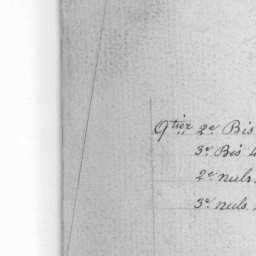 Qtier 2e Bis
3e Bis
2e nuls
3e nuls